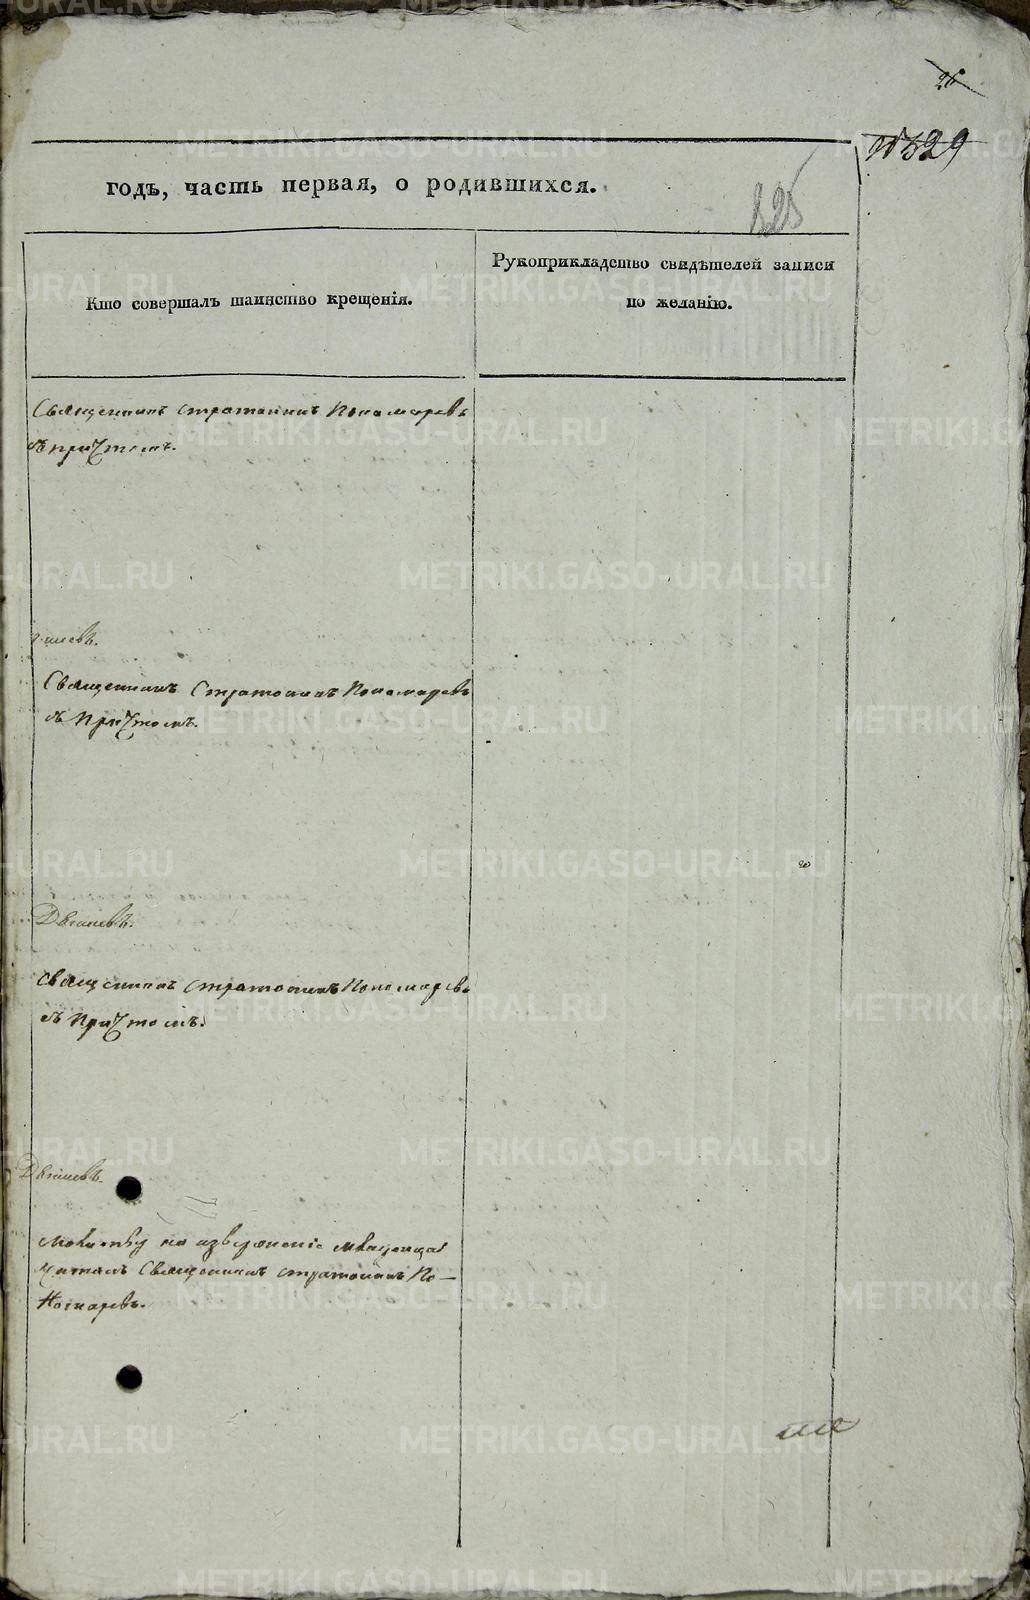 26
529
годъ, часть первая, о родившихся.
525
Кто совершалъ таинство крещенія.
Рукоприкладство свидѣтелей записи
по желанію.
Священникъ Стратоникъ Пономаревъ
съ причтомъ.
Священникъ Стратоникъ Пономаревъ
съ Причтомъ.
Священникъ Стратоникъ Пономаревъ
съ Причтомъ.
молитву на извержение младенца
читалъ Священникъ Стратоникъ По-
номаревъ.
METRIKI.GASO-URAL.RU